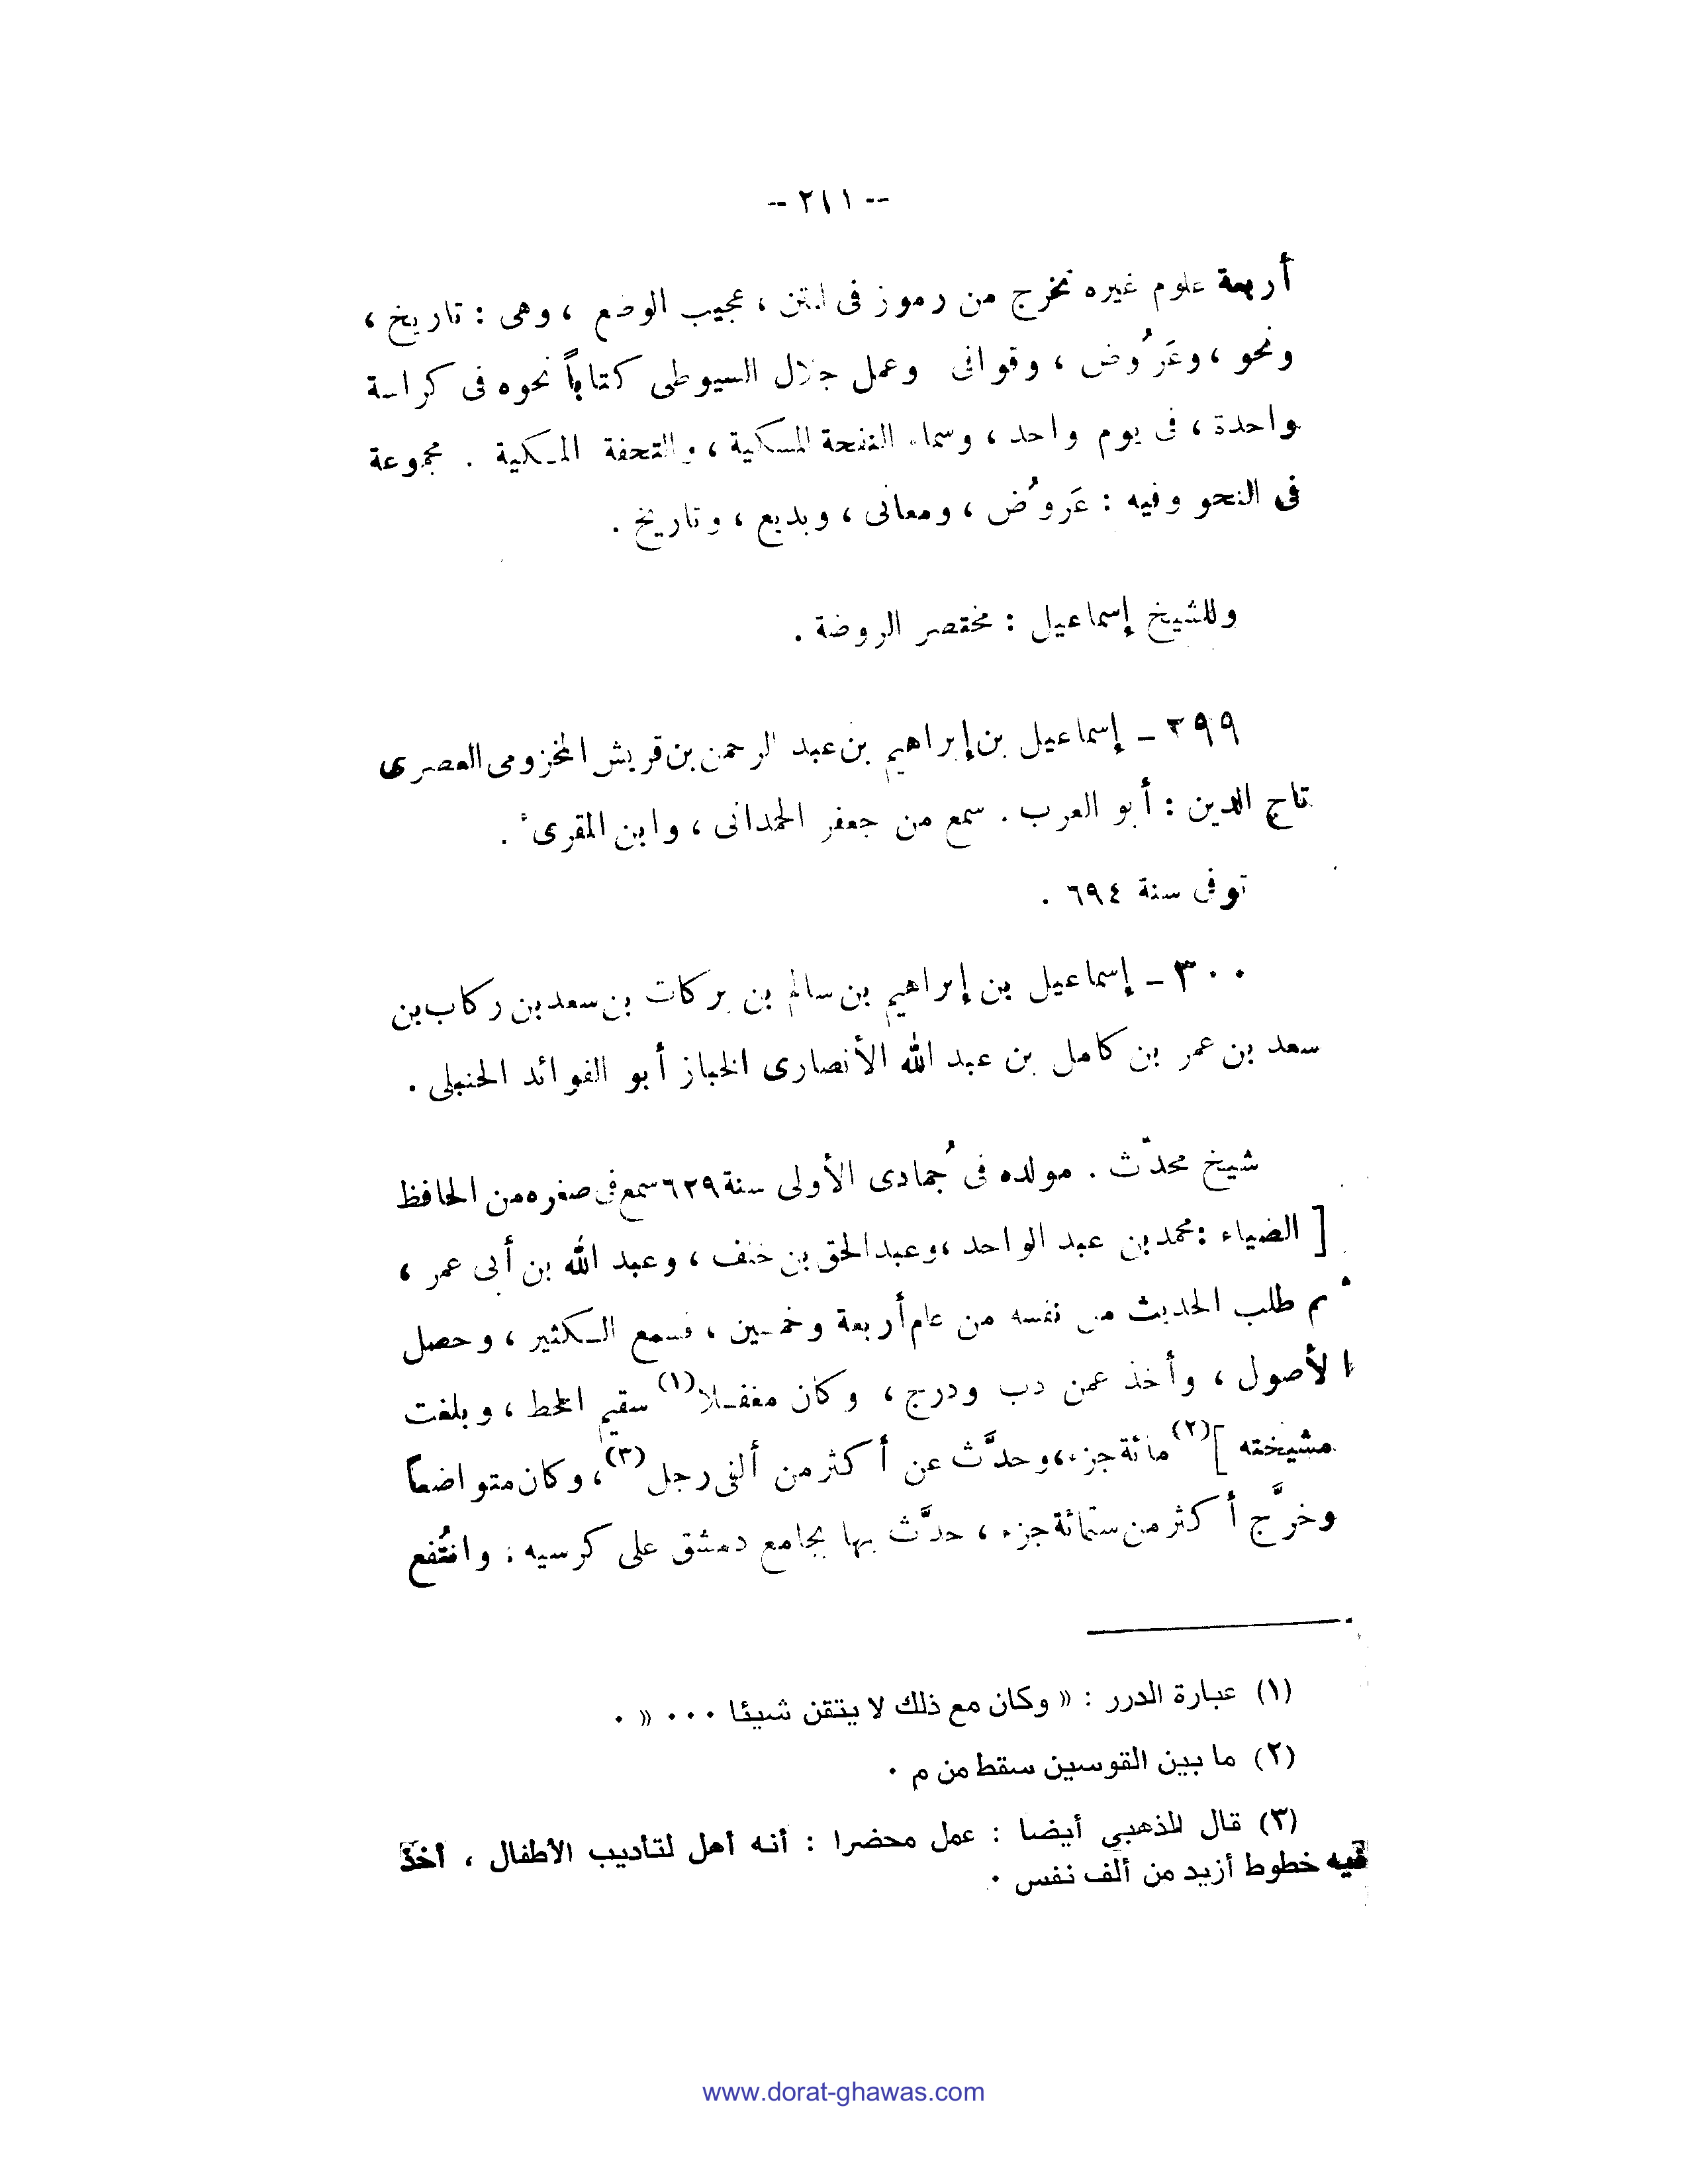 -- ٢١١ --
أربعة علوم غيره تخرج من رموز فى المتن ، عجيب الوضع ، وهى : تاريخ ،
ونحو ، وعَرُوض ، وقوافى وعمل جلال السيوطى كتاباً نحوه فى كراسة
واحدة ، فى يوم واحد ، وسماه النفحة المسكية ، والتحفة المكية . مجموعة
فى النحو وفيه : عَروُض ، ومعانى ، وبديع ، وتاريخ .
وللشيخ إسماعيل : مختصر الروضة .
٢٩٩ – إسماعيل بن إبراهيم بن عبد الرحمن بن قريش المخزومى العصرى
تاج الدين : أبو العرب . سمع من جعفر الهمدانى ، وابن المقرىء .
توفى سنة ٦٩٤ .
٣٠٠ – إسماعيل بن إبراهيم بن سالم بن بركات بن سعد بن ركاب بن
سعد بن عمر بن كامل بن عبد الله الأنصارى الخباز أبو الفوائد الحنبلى .
شيخ محدّث . مولده فى جُمادى الأولى سنة ٦٢٩ سمع فى صغره من الحافظ
[ الضياء : محمد بن عبد الواحد ، وعبد الحق بن خنف ، وعبد الله بن أبى عمر ،
ثم طلب الحديث من نفسه من عام أربعة وخمسين ، فسمع الكثير ، وحصل
الأصول ، وأخذ عمن دب ودرج ، وكان مغفلا (١) سقيم الخط ، وبلغت
مشيخته ] (٢) مائة جزء ، وحدَّث عن أكثر من ألفى رجل (٣) ، وكان متواضعاً
وخرَّج أكثر من ستمائة جزء ، حدَّث بها بجامع دمشق على كرسيه ، وانتُفع
(١) عبارة الدرر : « وكان مع ذلك لا يتقن شيئا ٠٠٠ » ٠
(٢) ما بين القوسين سقط من م ٠
(٣) قال الذهبي أيضا : عمل محضرا : أنه أهل لتأديب الأطفال ، أخذ
فيه خطوط أزيد من ألف نفس ٠
www.dorat-ghawas.com